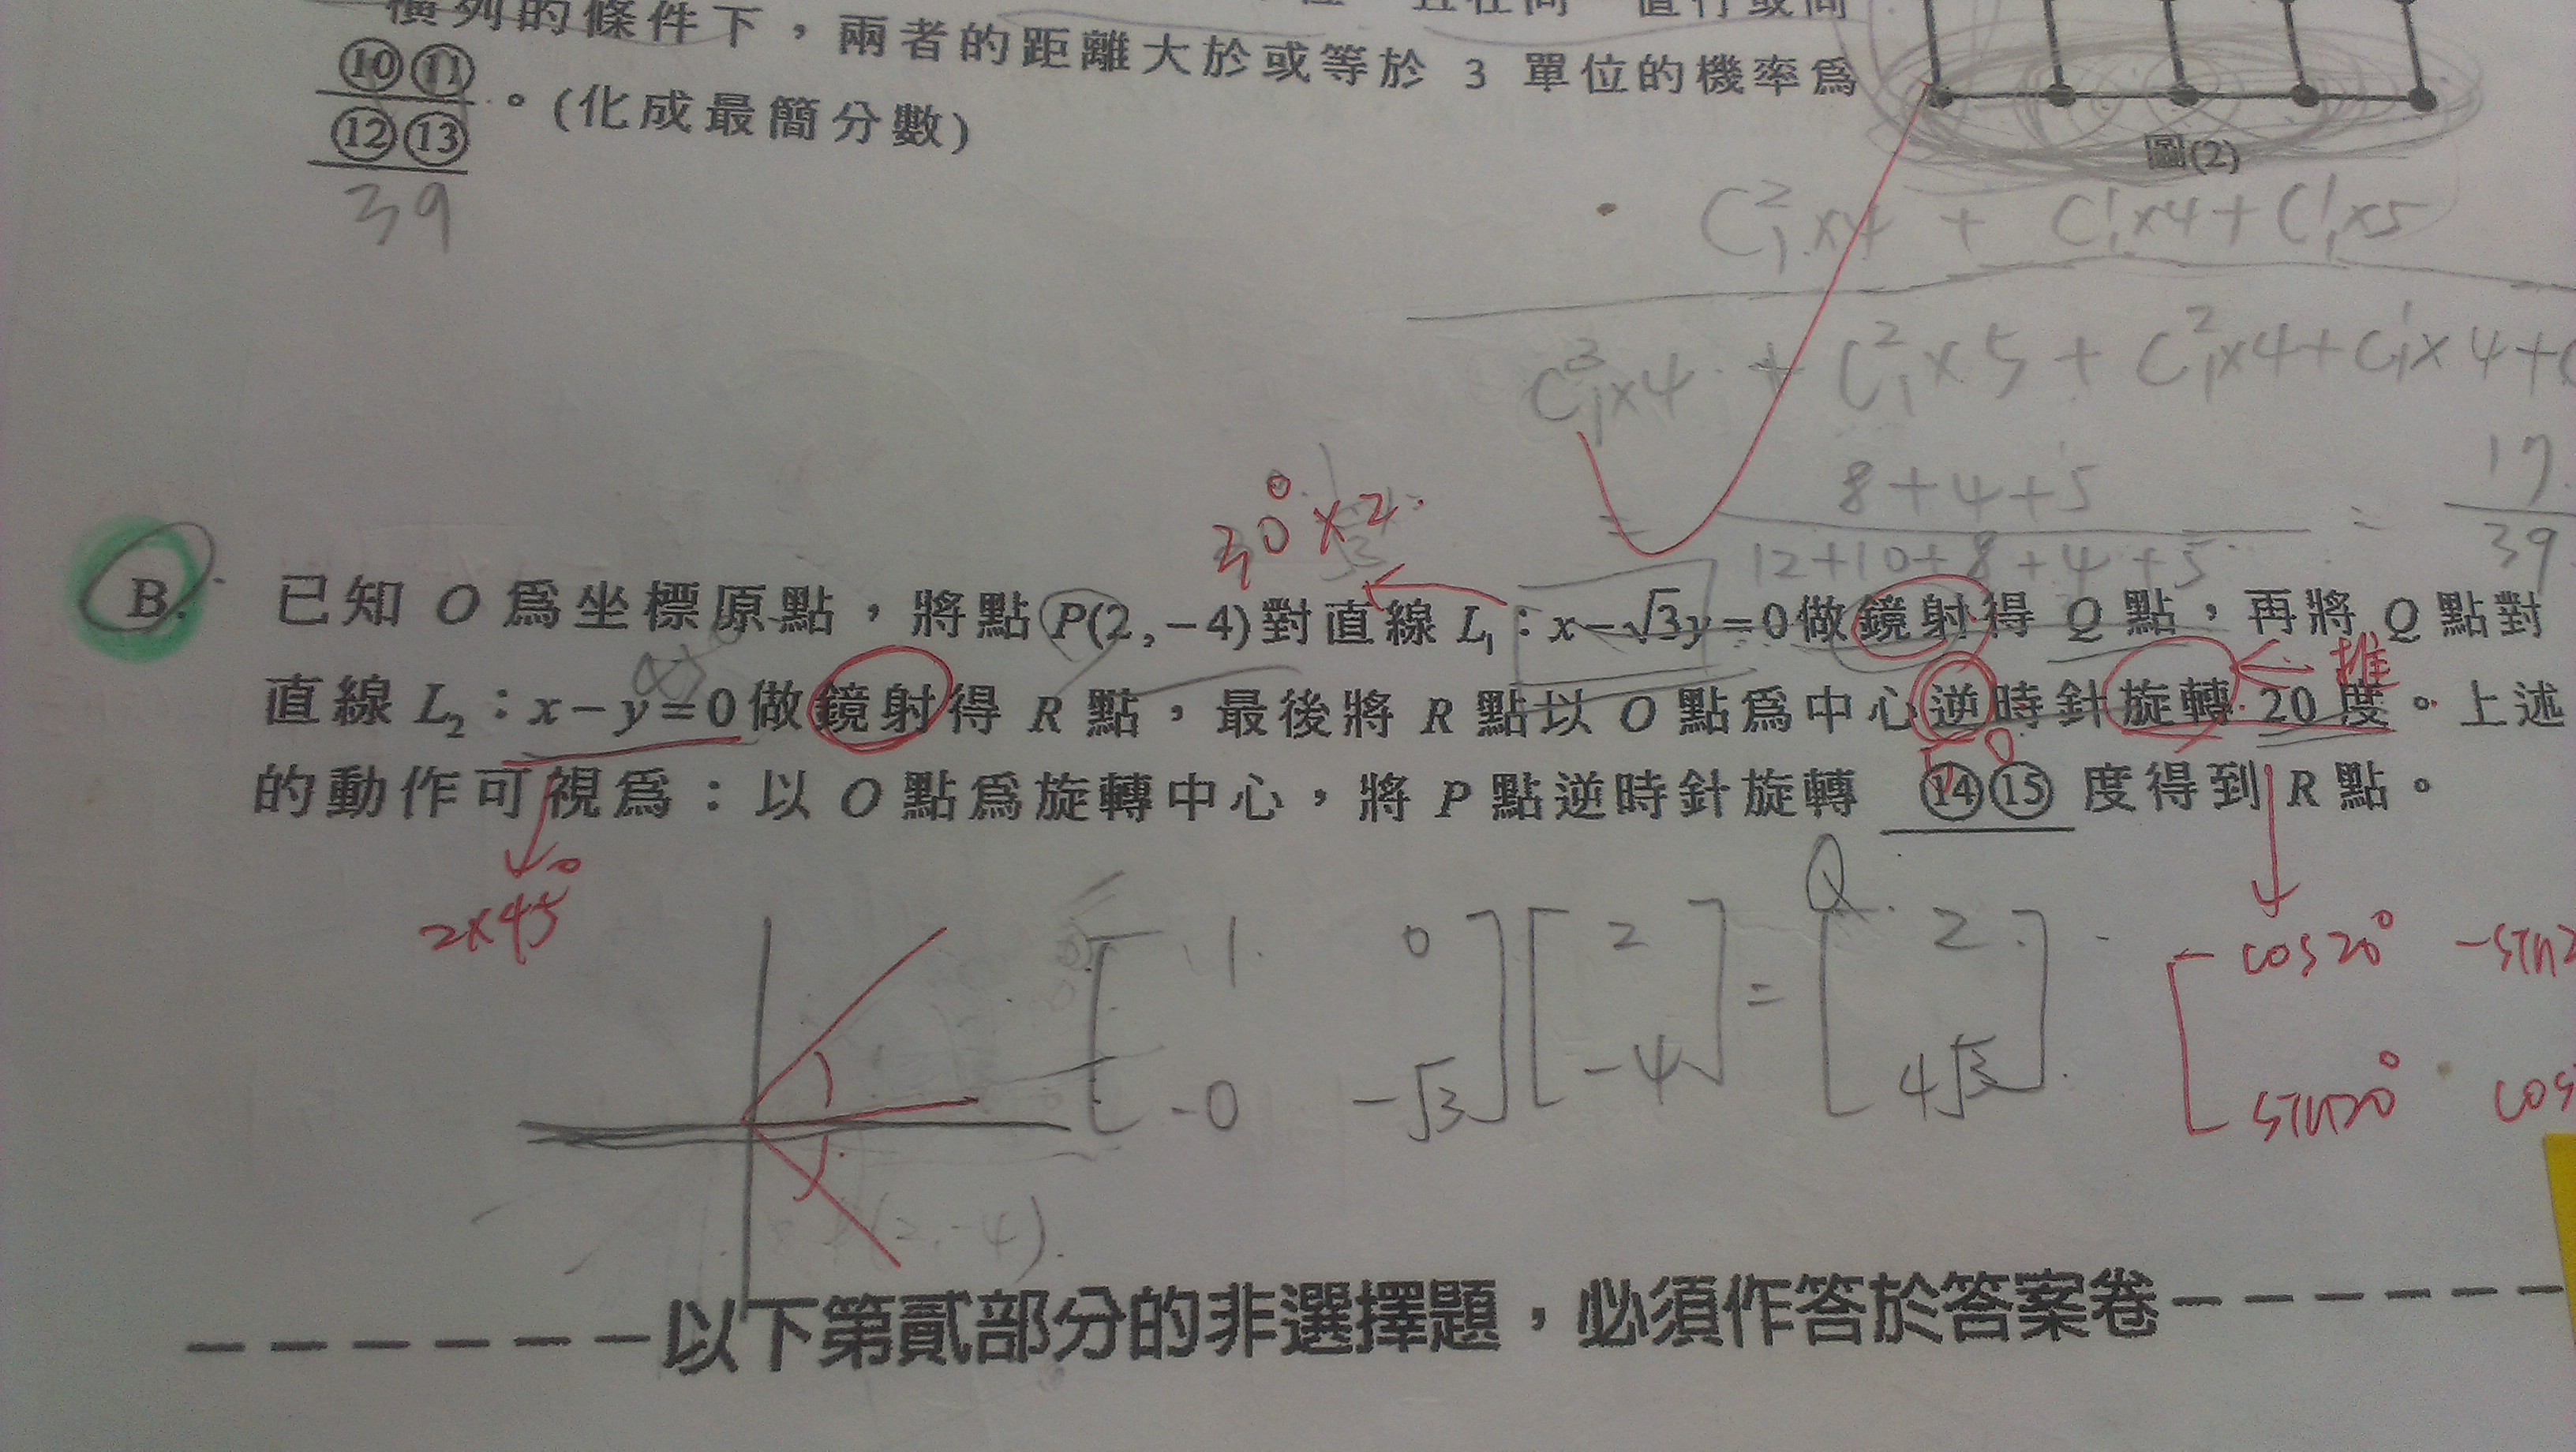 橫列的條件下，兩者的距離大於或等於 3 單位的機率為
⑩⑪
⑫⑬
。(化成最簡分數)
39
圖(2)
C²₁×4 + C¹₁×4 + C¹₁×5
C³₁×4 + C²₁×5 + C²₁×4 + C¹₁×4 +
= 8+4+5
12+10+8+4+5
= 17
39
30°×2
B. 已知 O 為坐標原點，將點 P(2,−4) 對直線 L₁：x−√3y=0 做鏡射得 Q 點，再將 Q 點對
推
直線 L₂：x−y=0 做鏡射得 R 點，最後將 R 點以 O 點為中心逆時針旋轉 20 度。上述
的動作可視為：以 O 點為旋轉中心，將 P 點逆時針旋轉 ⑭⑮ 度得到 R 點。
2×45°
Q
[1 0] [2] = [2]
[-0 -√3] [-4] [4√3]
cos20° -sin2
sin20° cos
(2,-4)
以下第貳部分的非選擇題，必須作答於答案卷